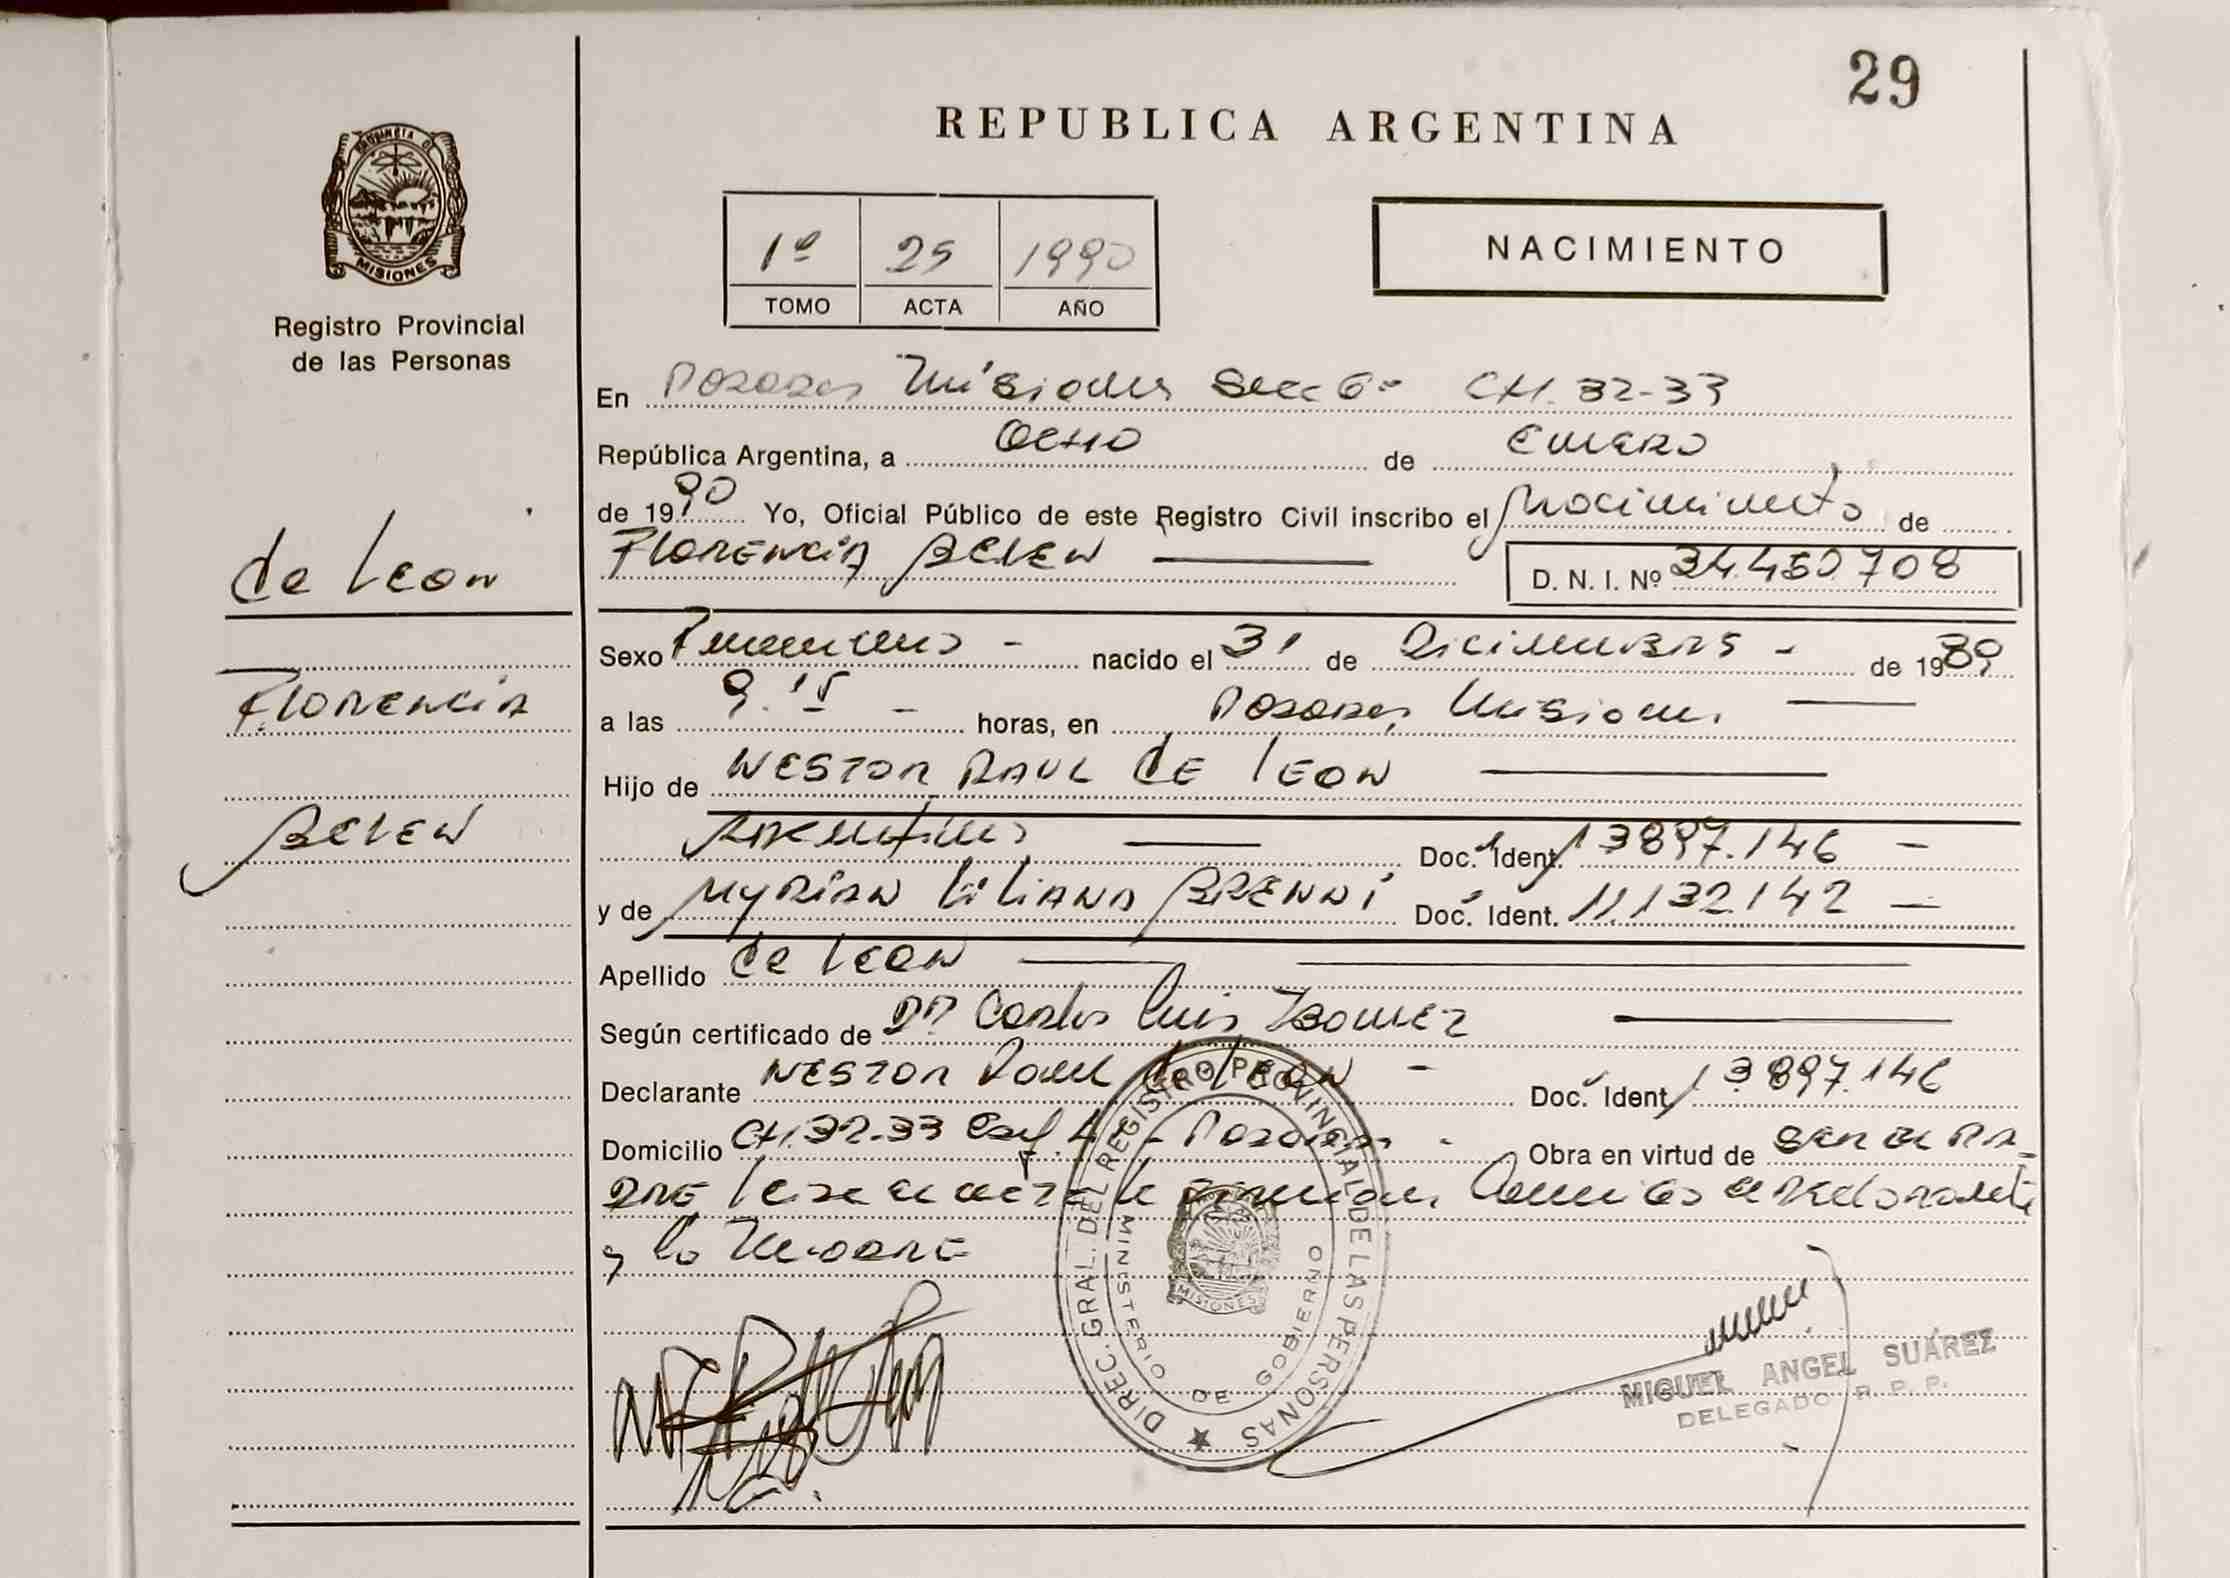 29
REPUBLICA ARGENTINA
PROVINCIA DE
MISIONES
Registro Provincial
de las Personas
1º 25 1990
TOMO ACTA AÑO
NACIMIENTO
En Posadas Misiones Secc 6ª CH. 32-33
República Argentina, a Ocho de Enero
de 1990 Yo, Oficial Público de este Registro Civil inscribo el Nacimiento de
Florencia Belen D. N. I. Nº 34.450.708
de leon
Florencia
Belen
Sexo Femenino - nacido el 31 de Diciembre - de 1989
a las 9.15 - horas, en Posadas, Misiones
Hijo de NESTOR RAUL de leon
Argentino Doc. Ident. 13897.146 -
y de Myrian Liliana Doc. Ident. 11.132.142 -
Apellido de leon
Según certificado de Dr Carlos Luis
Declarante NESTOR Raul de leon - Doc. Ident. 13.897.146
Domicilio CH.32-33 - Posadas - Obra en virtud de ser el PA-
DRE leida el acta la firman el declarante
y la Madre
DIREC. GRAL. DEL REGISTRO PROVINCIAL DE LAS PERSONAS
MINISTERIO DE GOBIERNO
MISIONES
MIGUEL ANGEL SUÁREZ
DELEGADO R. P. P.